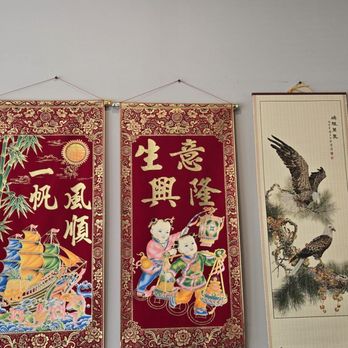 一帆
風順
生意
興隆